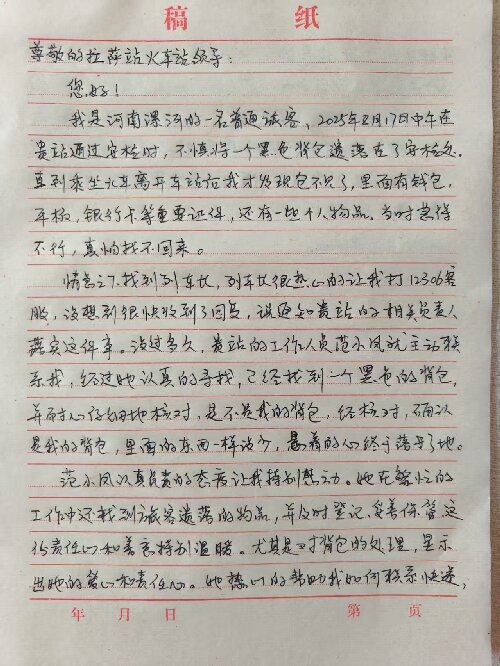 稿 纸
尊敬的拉萨站火车站领导：
您好！
我是河南漯河的一名普通旅客，2025年8月17日中午在
贵站通过安检时，不慎将一个黑色背包遗落在了安检处。
直到乘坐火车离开车站后我才发现包不见了，里面有钱包，
平板，银行卡等重要证件，还有一些个人物品。当时急得
不行，真怕找不回来。
情急之下找到列车长，列车长很热心的让我打12306客
服，没想到很快收到了回复，说通知贵站的相关负责人
落实这件事。没过多久，贵站的工作人员范小凤就主动联
系我，经过她认真的寻找，已经找到一个黑色的背包，
并耐心仔细地核对，是不是我的背包，经核对，确认
是我的背包，里面的东西一样没少，悬着的心终于落了地。
范小凤认真负责的态度让我特别感动。她在繁忙的
工作中还找到旅客遗落的物品，并及时登记、妥善保管，这
份责任心和善意特别温暖。尤其是对背包的处理，显示
出她的爱心和责任心。她热心的帮助我如何联系快递，
年 月 日 第 页